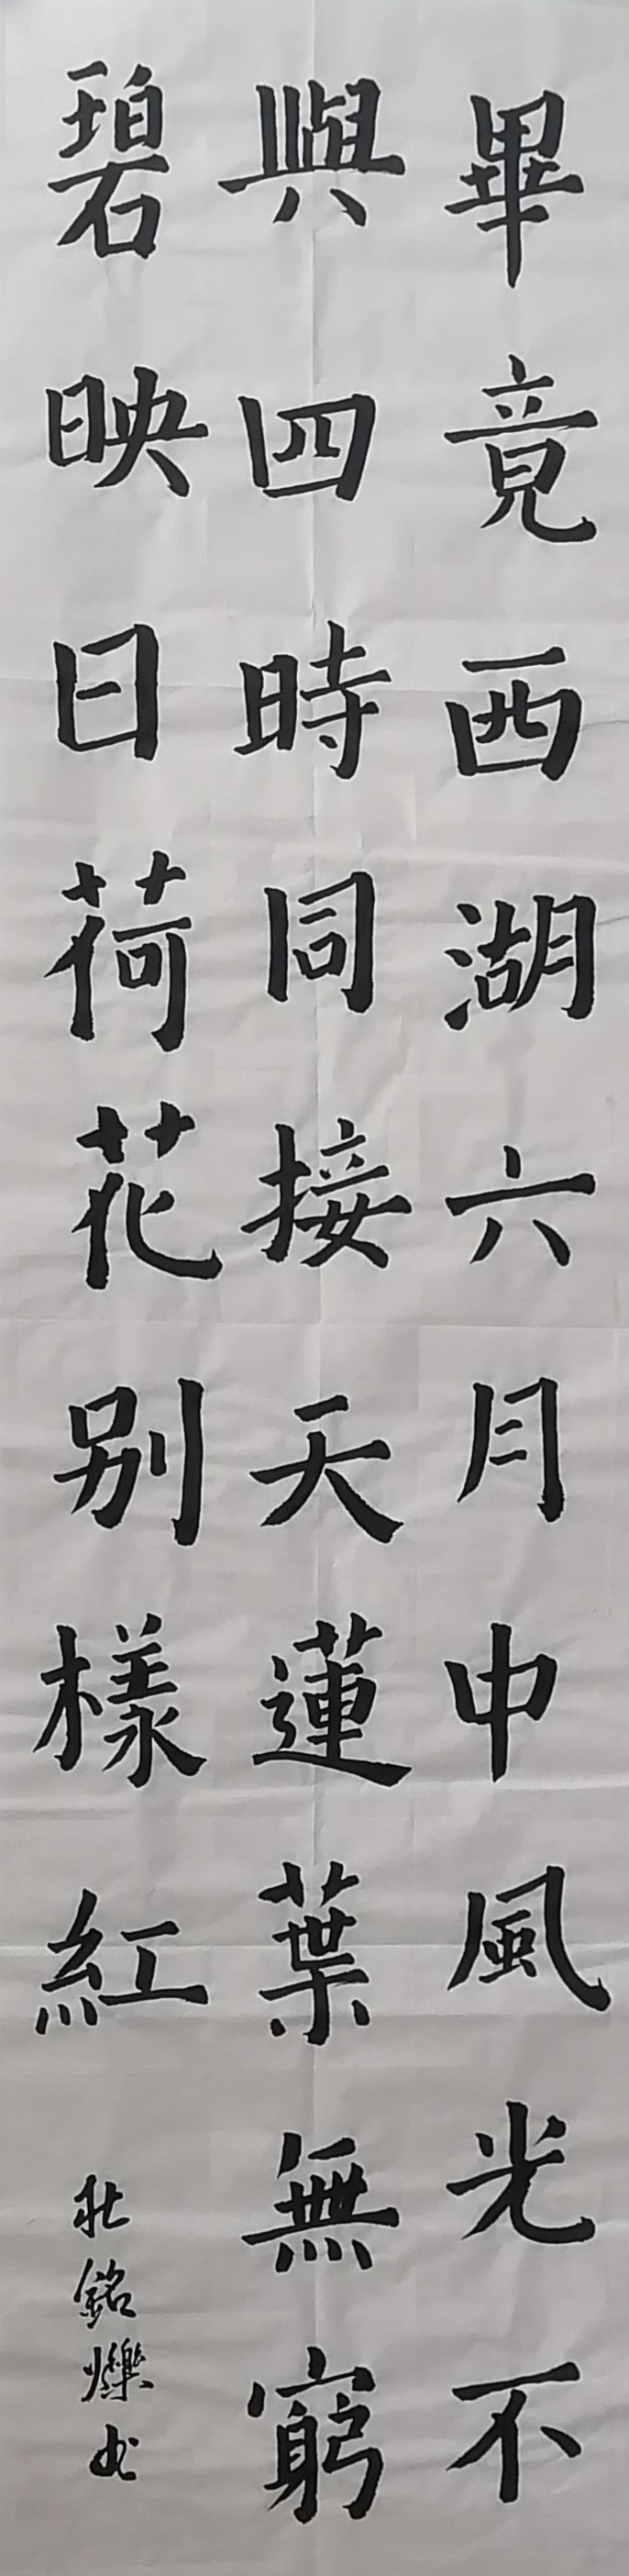 畢竟西湖六月中風光不
與四時同接天蓮葉無窮
碧映日荷花别樣紅
銘爍书